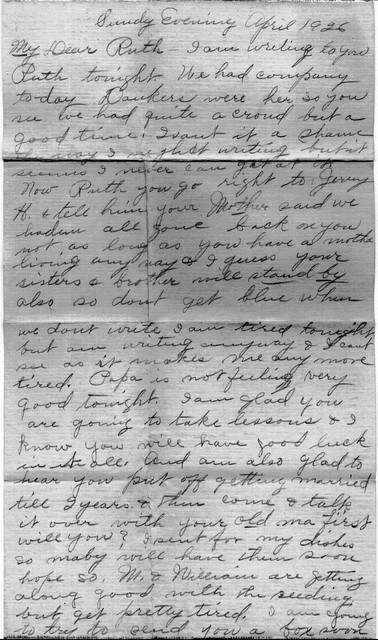 Sundy Evening April 1926
My Dear Ruth - I am writing to you
Ruth tonight. We had company
today Dankers were her so you
see we had quite a croud but a
good time. isant it a shame
way I neglect writing but it
seems I never can get at it
Now Ruth you go right to Jerry
H. & tell him your Mother said we
hadun all gone back on you
not as long as you have a mother
living any way & I guess your
sisters & brother will stand by
also so dont get blue when
we dont write I am tired tonight
but am writing anyway & I cant
see as it makes me any more
tired. Papa is not feeling very
good tonight. I am glad you
are going to take lessons & I
know you will have good luck
in it all. And am also glad to
hear you put off getting married
till 2 years. & then come & talk
it over with your old ma first
will you? I sent for my dishes
so maby will have them soon
hope so. M. & William are getting
along good with the seeding
but get pretty tired. I am going
to try to send you a box soon